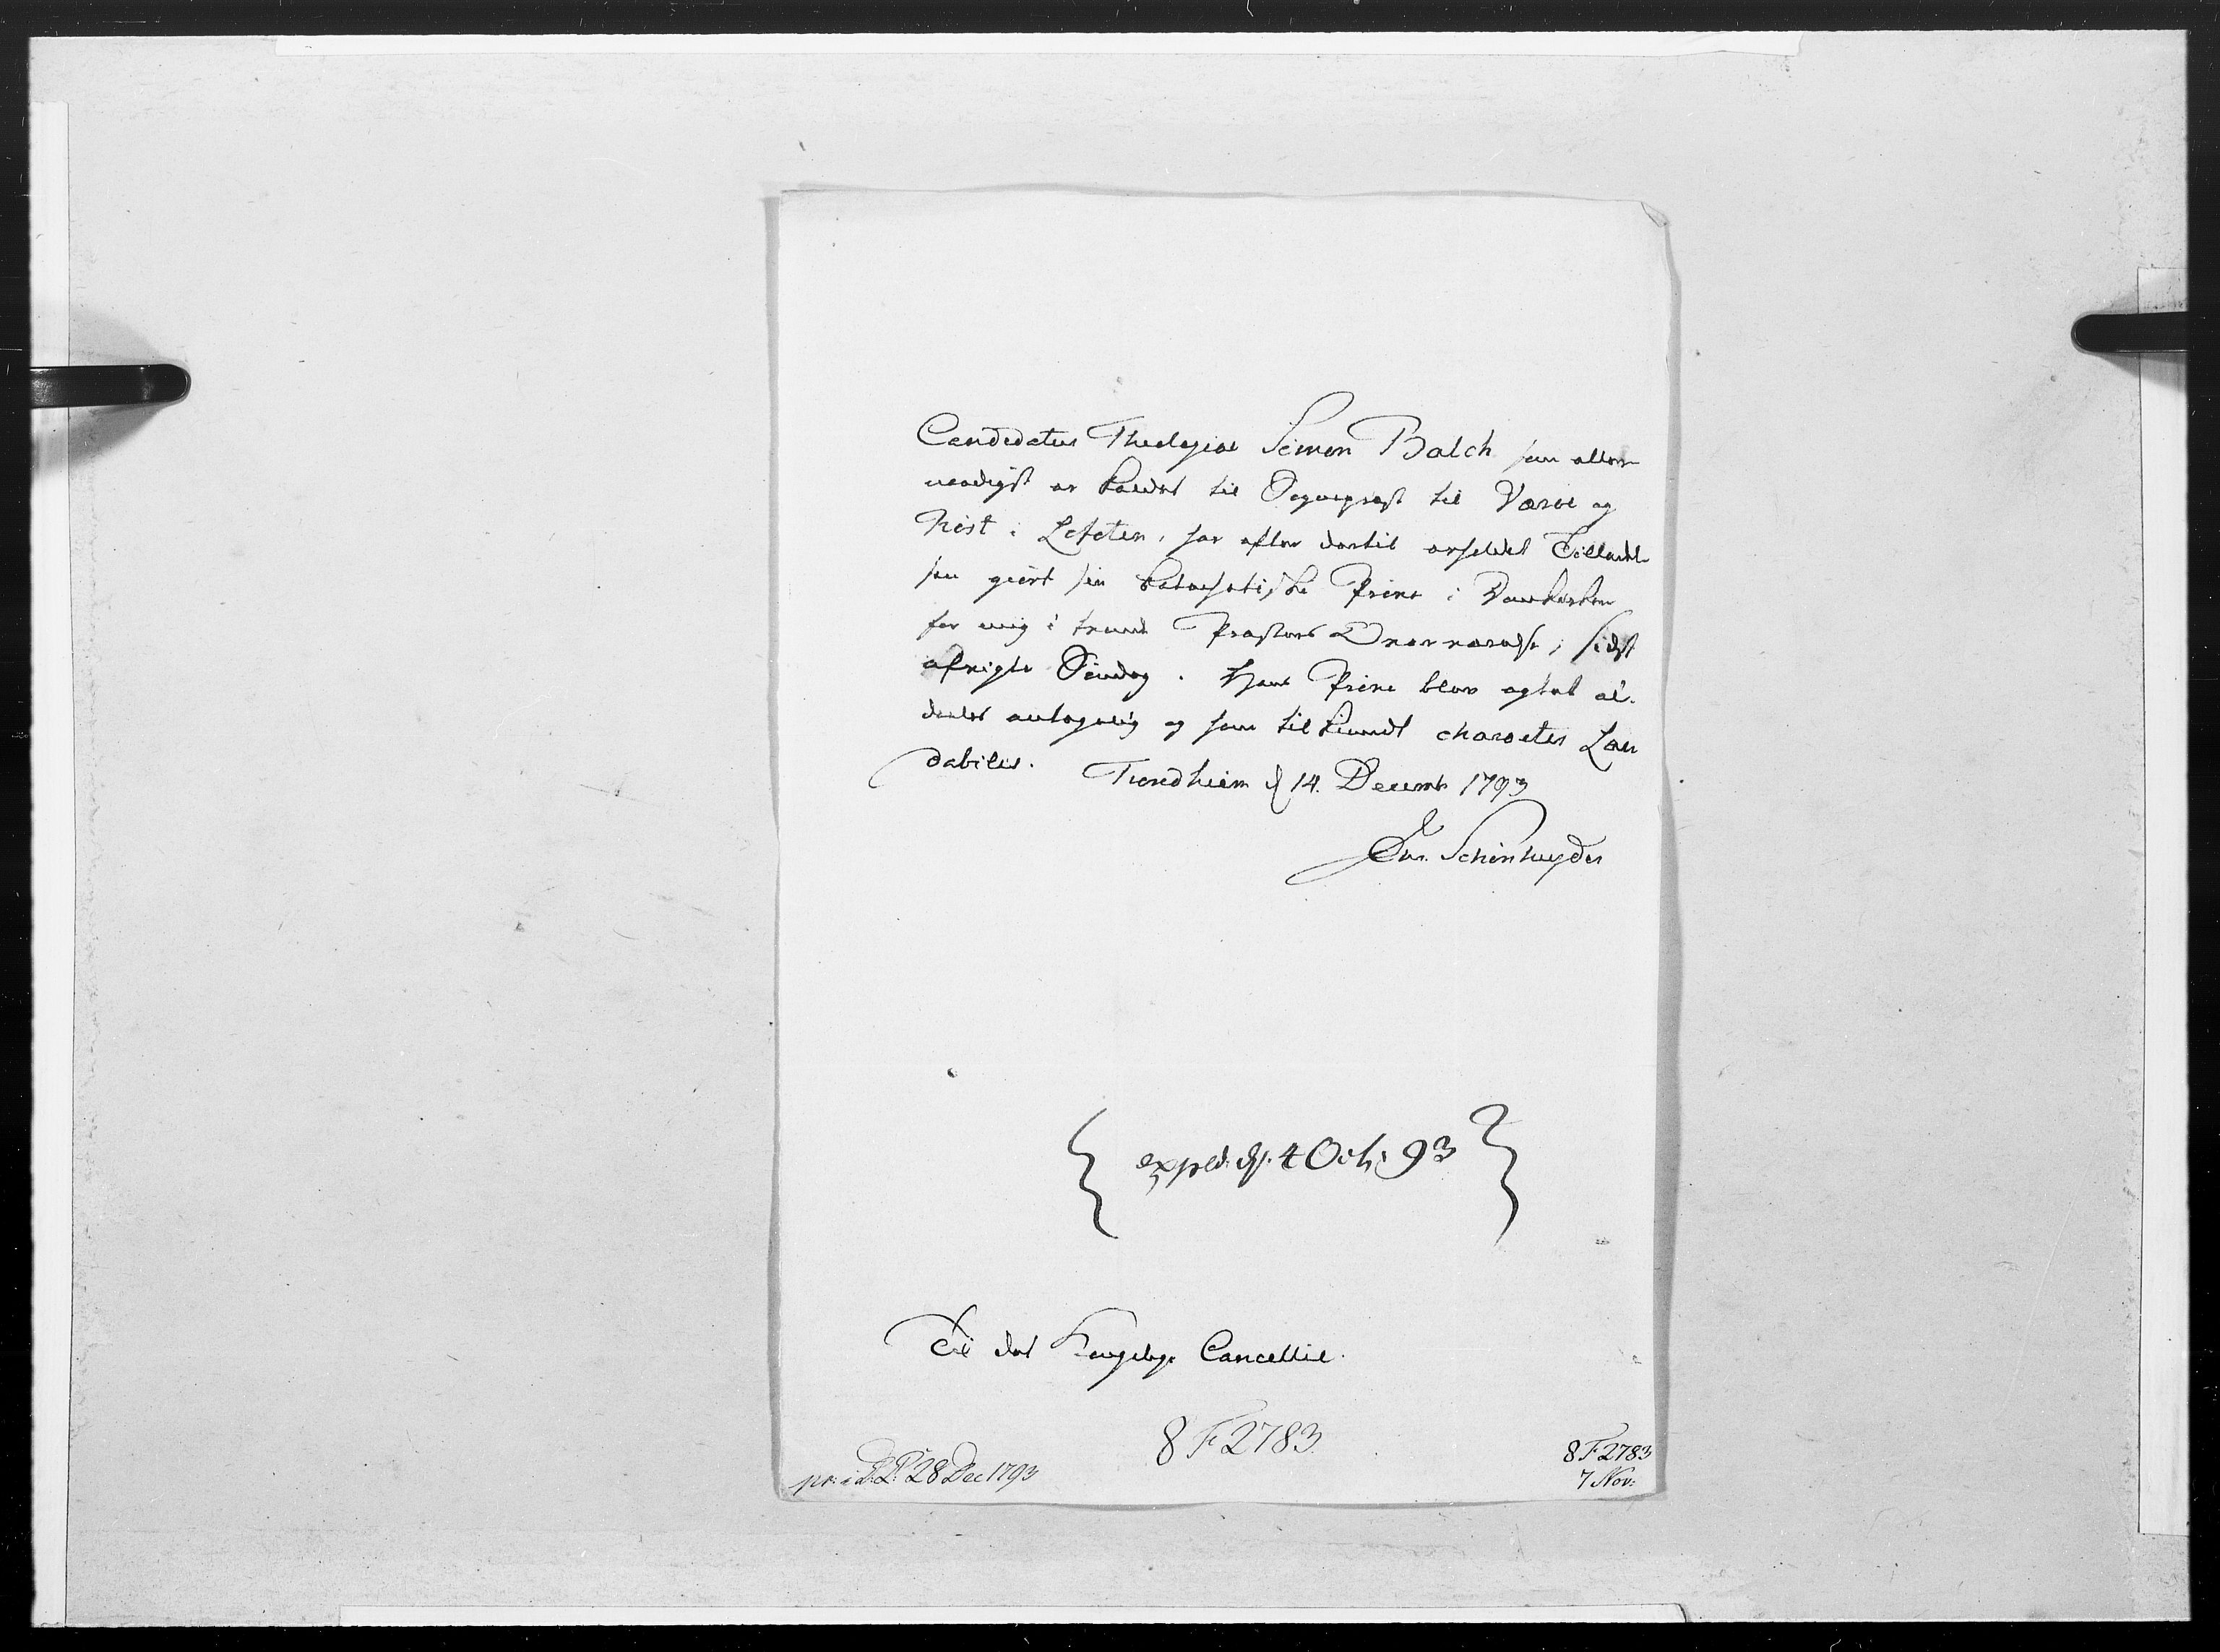 Candidatus Theologiæ Simon Balch som aller-
naadigst er kaldet til Sognepræst til Værøe og
Røst i Lofoten, har efter dertil erholdet Tilladel-
sen giört sin Catechetiske Pröve i Domkirken
for mig i trende Præsters Overværelse, sidst
afvigte Söndag. Hans Pröve blev agtet al-
deeles antagelig og ham tilkiendt character Lau
dabilis. Trondhiem d 14. Decembr 1793
Schönheyder
exped. d. 4 Oct: 93
Til det Kongelige Cancellie.
8 F 2783.
pr: i D. C: 28 Dec 1793
8 F 2783
7 Nov: